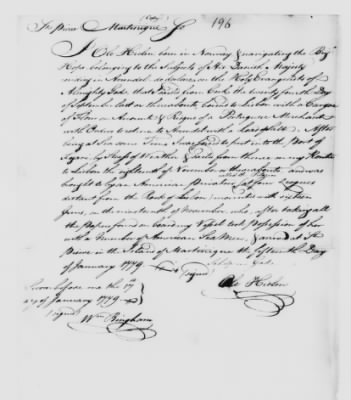 (Copy)
196
St. Pierre Martinique Ss.
I Ole Hielm born in Norway & navigating the Brig
Hope belonging to the Subjects of His Danish Majesty
residing in Arundel do declare on the Holy Evangelists of
Almighty God, that I sailed from Cork the twenty fourth Day of
September last on thereabouts bound to Lisbon with a Cargoe
of Flour on Account & Risque of a Portuguese Merchant
with Orders to return to Arundel with a Load of Salt. After
being at Sea some Time I was forced to put into the Port of
by Stress of Weather & sailed from thence on my Route
to Lisbon the eighteenth of November or thereabouts and was
brought to by an American Privateer (at four Leagues
distant from the Rock of Lisbon) mounted with sixteen
Guns, on the nineteenth of November who, after taking all
the Papers found on board my Vessel took Possession of her
with a Number of American Sea Men & arrived at St.
Pierre in the Island of Martinique the fifteenth Day
of January 1779
(signed)
Ole Hielm
Sworn before me the 17
day of January 1779
(signed)
Wm Bingham